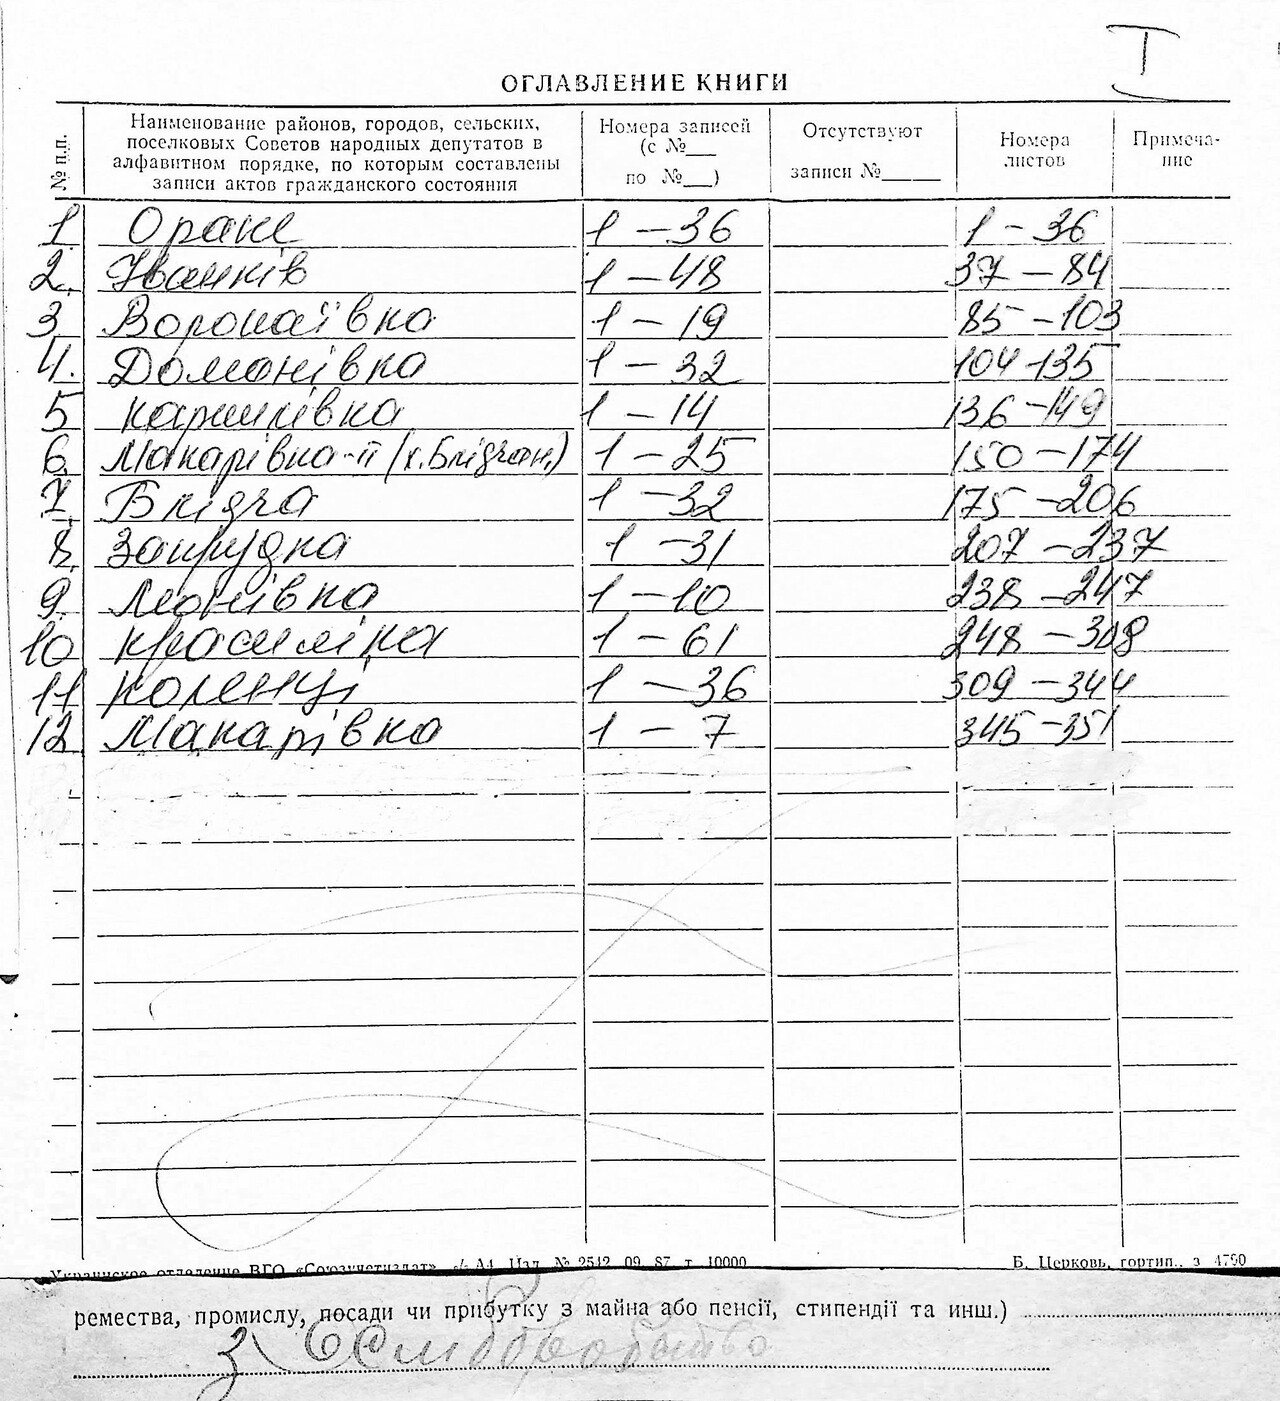 I
ОГЛАВЛЕНИЕ КНИГИ
№ п.п. Наименование районов, городов, сельских, поселковых Советов народных депутатов в алфавитном порядке, по которым составлены записи актов гражданского состояния Номера записей (с №___ по №___) Отсутствуют записи №______ Номера листов Примеча-ние
1. Оране 1 – 36 1 – 36
2. Іванків 1 – 48 37 – 84
3 Воропаївка 1 – 19 85 – 103
4. Доманівка 1 – 32 104 – 135
5 Карпилівка 1 – 14 136 – 149
6. Макарівка-ІІ (к. Блідчан.) 1 – 25 150 – 174
7. Блідча 1 – 32 175 – 206
8. Запрудка 1 – 31 207 – 237
9. Леонівка 1 – 10 238 – 247
10 Красилівка 1 – 61 248 – 308
11 Коленці 1 – 36 309 – 344
12. Макарівка 1 – 7 345 – 351
Украинское отделение ВГО «Союзучетиздат» ф. А4 Изд. № 2542 09. 87. т. 10000 Б. Церковь, гортип., з 4750
ремества, промислу, посади чи прибутку з майна або пенсії, стипендії та инш.)
з